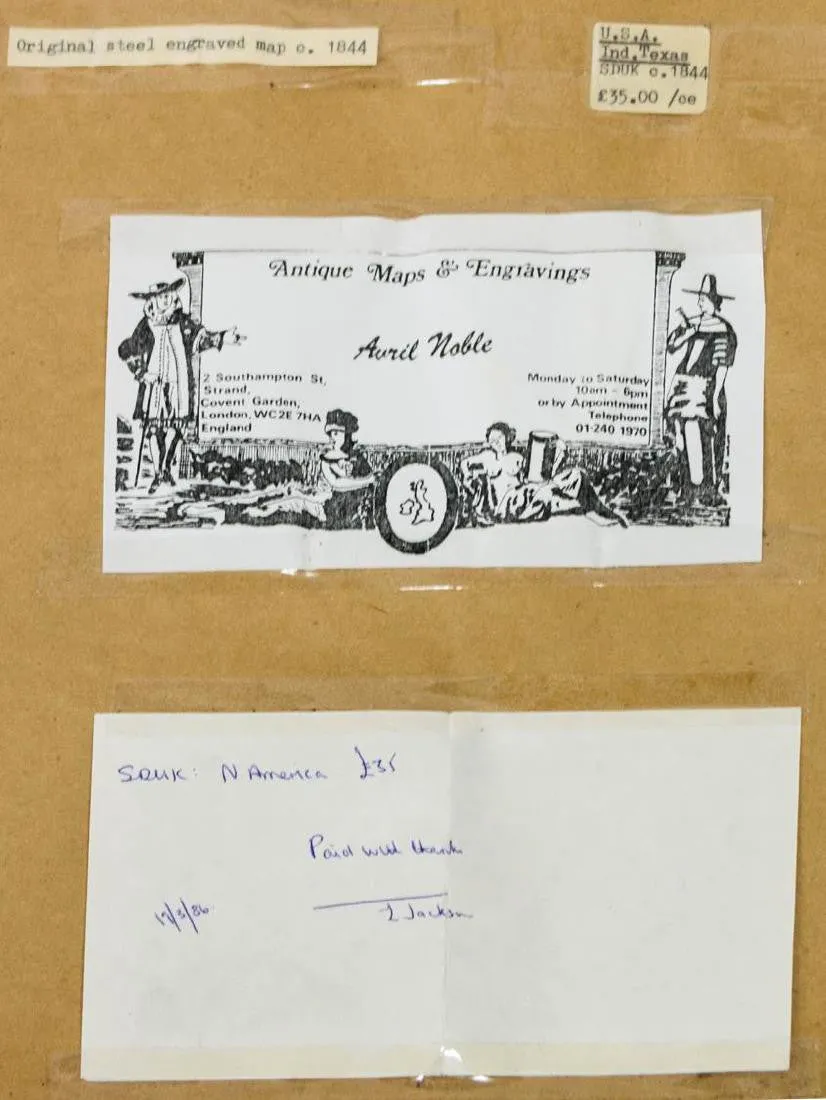 Original steel engraved map c. 1844
U.S.A.
Ind.Texas
SDUK c.1844
£35.00 /oe
Antique Maps & Engravings
Avril Noble
2 Southampton St,
Strand,
Covent Garden,
London, WC2E 7HA
England
Monday to Saturday
10am - 6pm
or by Appointment
Telephone
01-240 1970
SDUK: N America £35
Paid with thanks
12/3/86
L Jackson